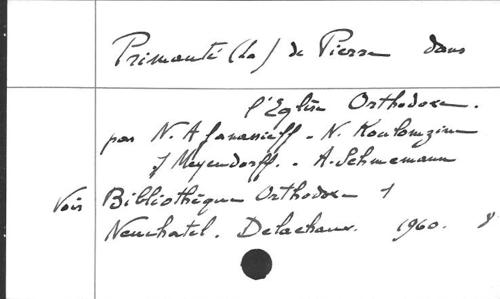 Primauté (La) de Pierre dans
l'Eglise Orthodoxe.
par N. Afanassieff - N. Koulomzine
J Meyendorff. - A. Schmemann
Voir Bibliothèque Orthodoxe 1
Neuchatel. Delachaux. 1960. 8°